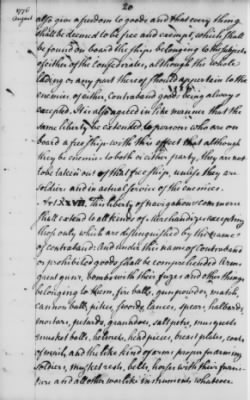 20
1776
August
also give a freedom to goods and that every thing
shall be deemed to be free and exempt, which shall
be found on board the ships belonging to the subjects
of either of the Confederates, although the whole
lading or any part thereof should appertain to the
enemies of either, Contraband goods being always
excepted. It is also agreed in like manner that the
same liberty be extended to persons who are on
board a free ship with this effect that although
they be enemies to both or either party, they are not
to be taken out of that free ship, unless they are
soldiers and in actual service of the enemies.
Art. xxvii. This liberty of navigation & commerce
shall extend to all kinds of Merchandizes excepting
those only which are distinguished by the name
of contraband: And under this name of Contraband
or prohibited goods shall be comprehended Arms,
great guns, bombs with their fuzes and other things
belonging to them, fire balls, gun powder, match,
cannon ball, pikes, swords, lances, spears, halberds,
mortars, petards, granadoes, salt petre, musquets
musket balls, helmets, head pieces, breast plates, coats
of mail, and the like kind of arms proper for arming
soldiers, musket rests, belts, horses with their furni-
ture and all other warlike instruments whatever.